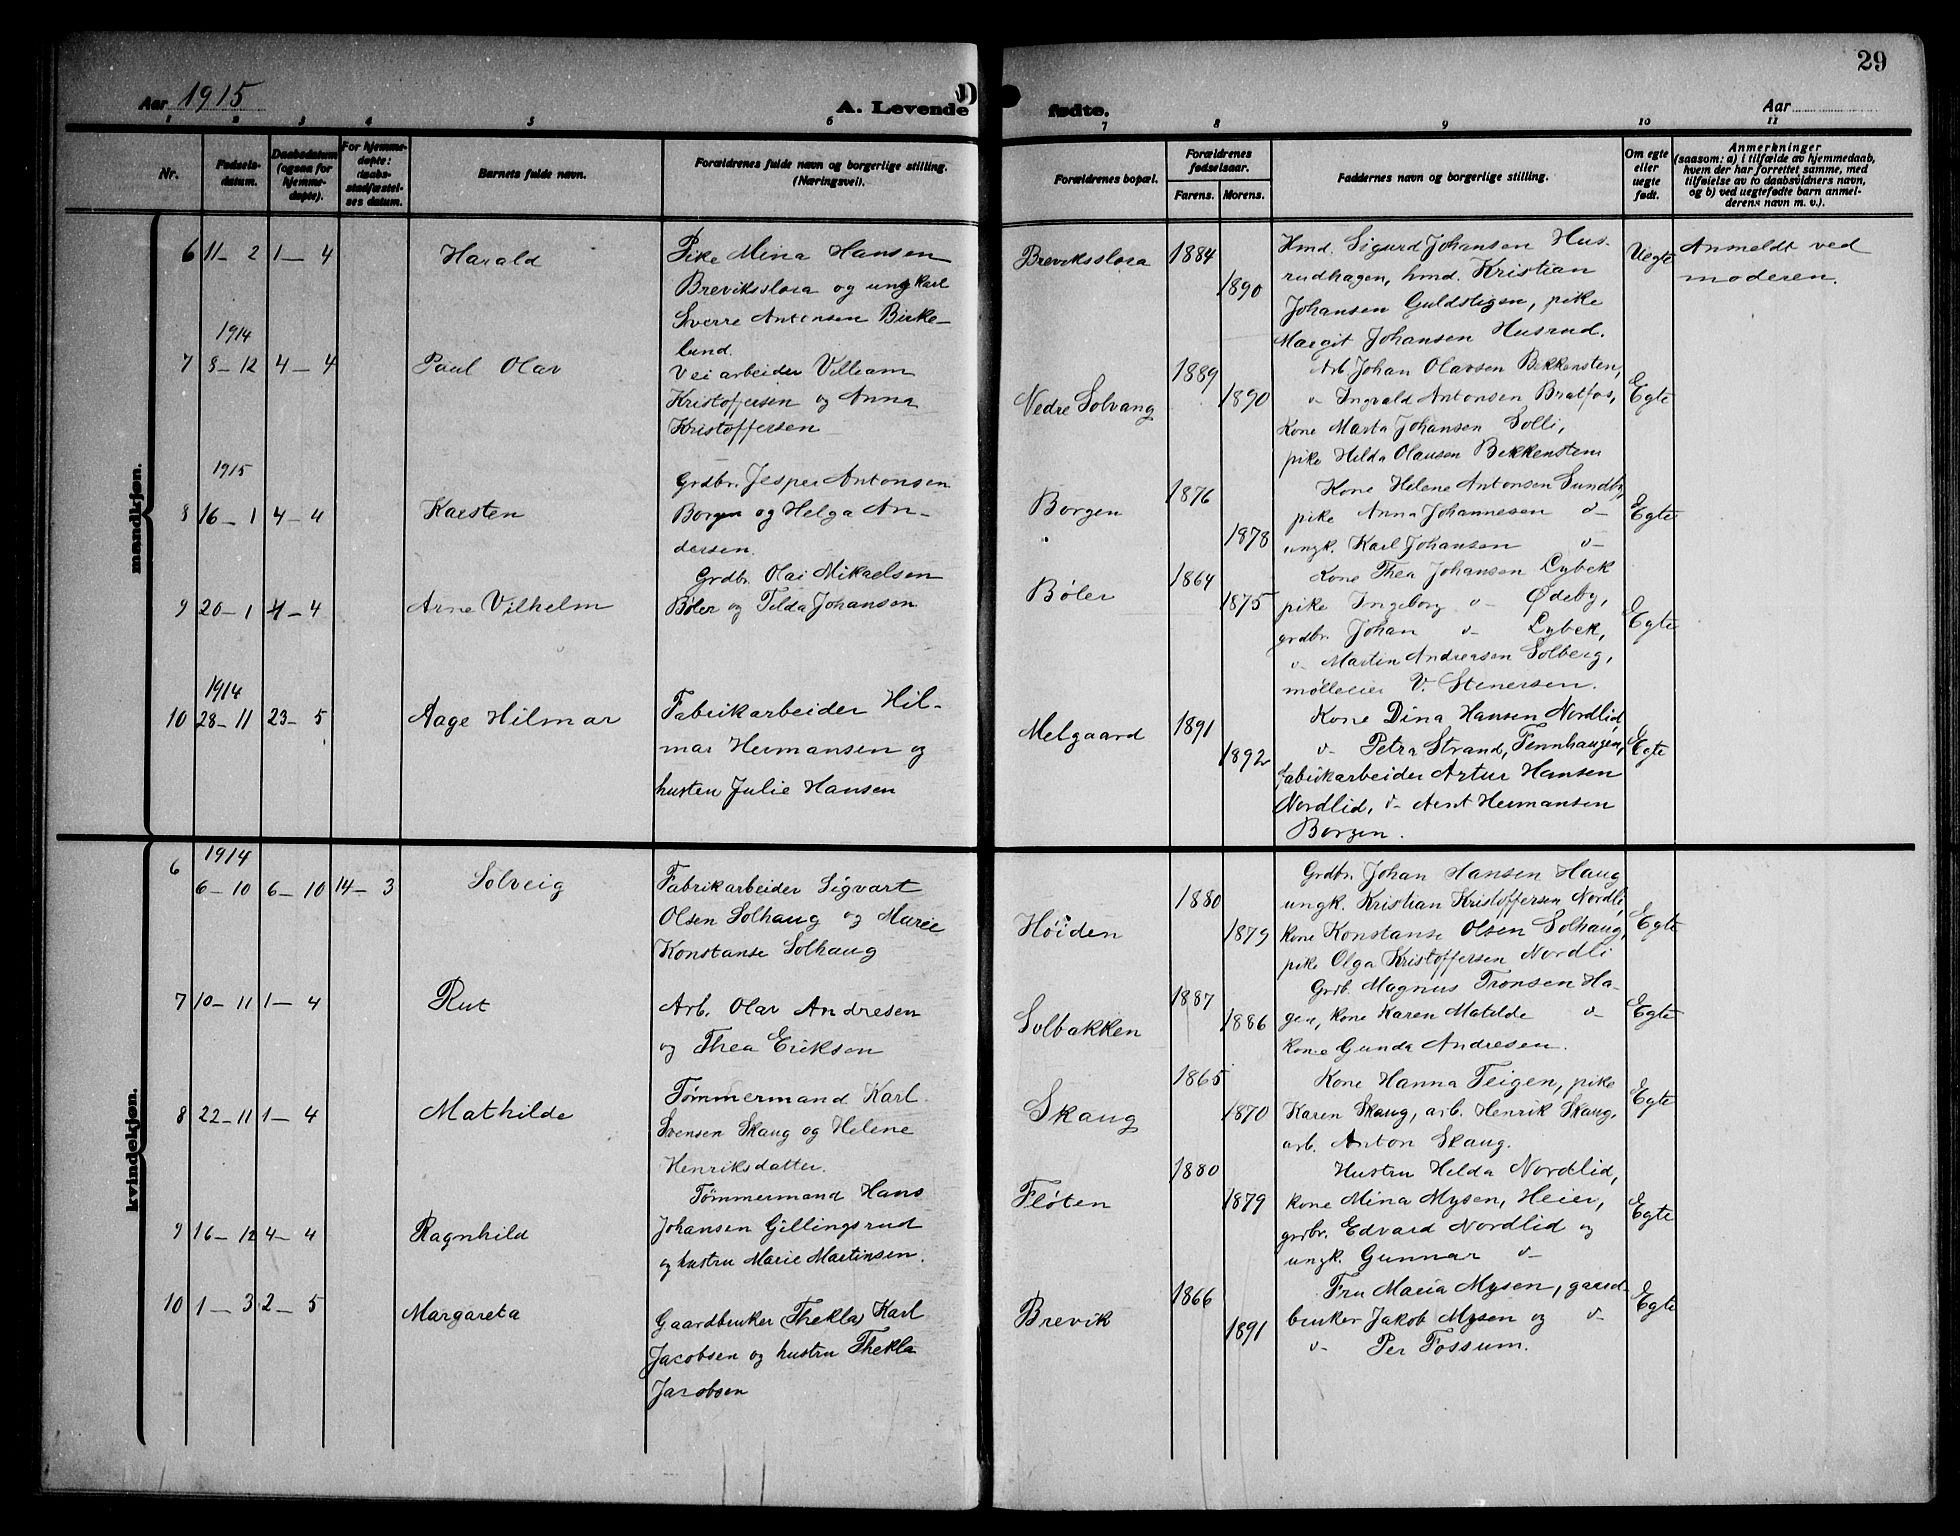 29
Aar 1915
A. Levende
fødte.
Aar
1 2 3 4 5 6 7 8 9 10 11
Nr.
Fødsels-
datum.
Daabsdatum
(ogsaa for
hjemme-
døpte).
For hjemme-
døpte:
daabs-
stadfæstel-
ses datum.
Barnets fulde navn.
Forældrenes fulde navn og borgerlige stilling.
(Næringsvei).
Forældrenes bopæl.
Forældrenes
fødselsaar.
Farens. Morens.
Faddernes navn og borgerlige stilling.
Om egte
eller
uegte
født.
Anmerkninger
(saasom: a) i tilfælde av hjemmedaab,
hvem der har forrettet samme, med
tilføielse av to daabsvidners navn,
og b) ved uegtefødte barn anmel-
derens navn m. v.).
mandkjøn.
6 11-2 1-4 Harald
Pike Mina Hansen
Breviksslora og ungkarl
Sverre Antonsen Birke-
lund.
Breviksslora 1884 1890
Hmd. Sigurd Johansen Hus-
rudhagen, hmd. Kristian
Johansen Guldstigen, pike
Margit Johansen Husrud.
Uegte
Anmeldt ved
moderen.
1914
7 8-12 4-4 Paul Olav
Veiarbeider Villiam
Kristoffersen og Anna
Kristoffersen
Nedre Solvang 1889 1890
Arb. Johan Olavsen Bekkensten,
v- Ingvald Antonsen Bratfos,
Kone Marta Johansen Solli,
pike Hilda Olausen Bekkensten
Egte
1915
8 16-1 4-4 Karsten
Grdbr. Jesper Antonsen
Borgen og Helga An-
dersen.
Borgen 1876 1878
Kone Helene Antonsen Sundby,
pike Anna Johannesen v-
ungk. Karl Johansen v-
Egte
9 20-1 4-4 Arne Vilhelm
Grdbr. Olai Mikaelsen
Bøler og Tilda Johansen
Bøler 1864 1875
Kone Thea Johansen Lybek
pike Ingeborg v- Ødeby,
grdbr. Johan v- Lybek,
v- Martin Andersen Solberg,
mølleeier V. Stenersen.
Egte
1914
10 28-11 23-5 Aage Hilmar
Fabrikarbeider Hil-
mar Hermansen og
husten Julie Hansen
Melgaard 1891 1892
Kone Dina Hansen Nordlid,
v- Petra Strand, Fennhaugen,
fabrikarbeider Artur Hansen
Nordlid, v- Arnt Hermansen
Borgen.
Egte
kvindekjøn.
1914
6 6-10 6-10 14-3 Solveig
Fabrikarbeider Sigvart
Olsen Solhaug og Marie
Konstanse Solhaug
Høiden 1880 1879
Grdbr. Johan Hansen Haug
ungk. Kristian Kristoffersen Nordli,
kone Konstanse Olsen Solhaug,
pike Olga Kristoffersen Nordli
Egte
7 10-11 1-4 Rut
Arb. Olav Andresen
og Thea Eriksen
Solbakken 1887 1886
Grdb. Magnus Tronsen Ha-
gen, kone Karen Matilde v-
kone Gunda Andresen.
Egte
8 22-11 1-4 Mathilde
Tømmermand Karl
Svensen Skaug og Helene
Henriksdatter.
Skaug 1865 1870
Kone Hanna Teigen, pike
Karen Skaug, arb. Henrik Skaug,
arb. Anton Skaug.
Egte
9 16-12 4-4 Ragnhild
Tømmermand Hans
Johansen Gillingsrud
og hustru Marie Martinsen.
Fløten 1880 1879
Hustru Hilda Nordlid,
kone Mina Mysen, Heier,
grdbr. Edvard Nordlid og
ungk. Gunnar v-
Egte
10 1-3 2-5 Margareta
Gaardbruker (Thekla) Karl
Jacobsen og hustru Thekla
Jacobsen
Brevik 1866 1891
Fru Maria Mysen, gaard-
bruker Jakob Mysen og v-
v- Per Fossum.
Egte